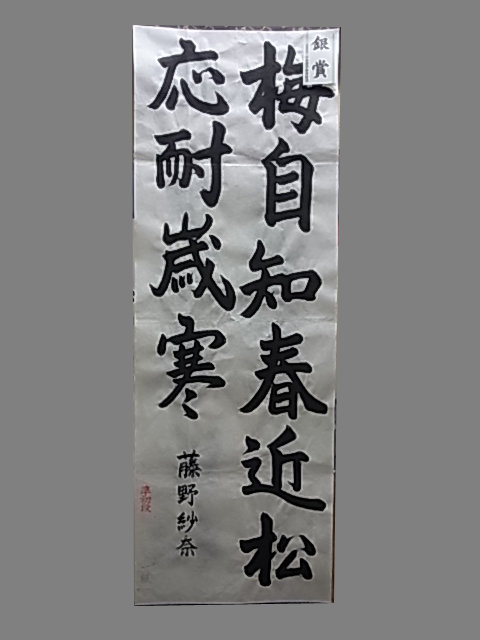 銀賞
梅自知春近松
応耐歳寒
藤野紗奈
準初段